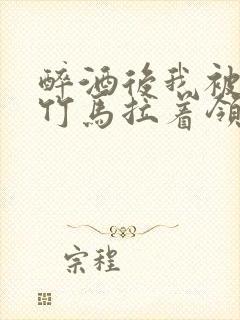 醉酒後我被
竹馬拉着領
宗程